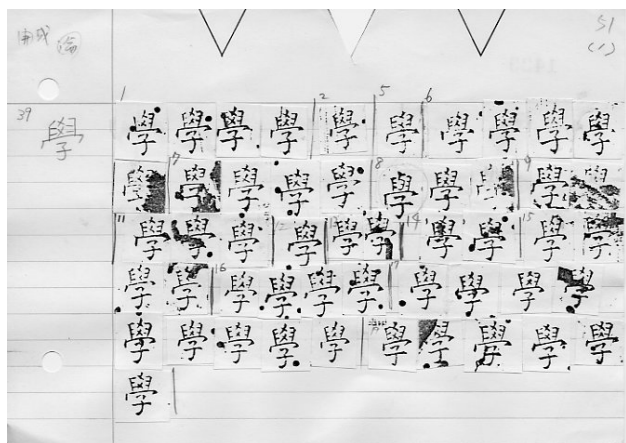 開成 論
51
(1)
39 學
1 學 學 學 學 2 學 5 學 6 學 學 學 學
學 7 學 學 學 學 8 學 學 學 9 學 學
11 學 學 學 12 學 13 學 學 14 學 學 15 學 學
學 學 16 學 學 學 學 17 學 學 學 學
學 學 學 學 學 學 學 學 學 學
學